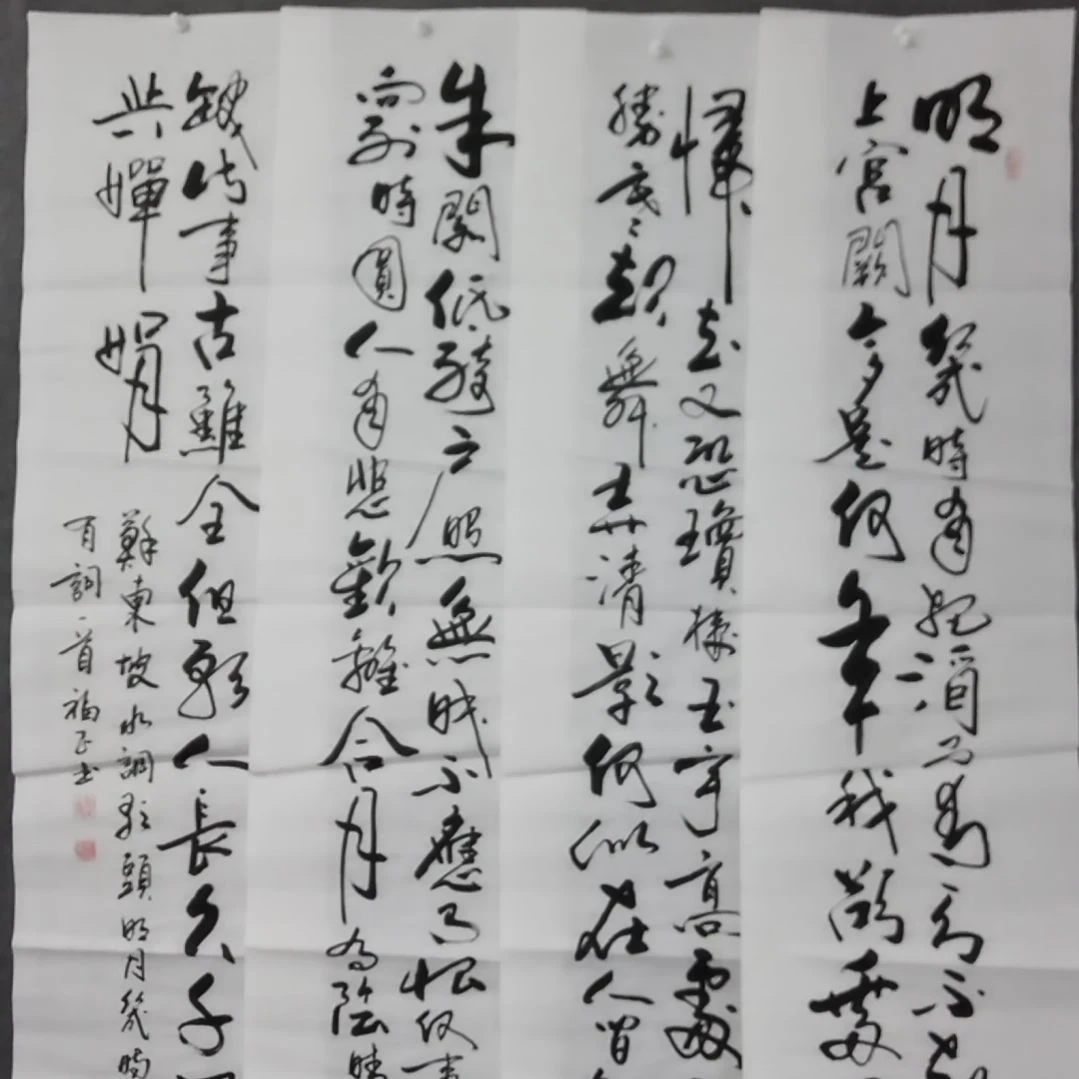 明月幾時有把酒問青天不知
上宮闕今夕是何年我欲乘
歸去又恐瓊樓玉宇高處
勝寒起舞弄清影何似在人間
朱閣低綺戶照無眠不應有恨何事
向別時圓人有悲歡離合月有陰晴
缺此事古難全但願人長久千里
共嬋娟
蘇東坡水調歌頭明月幾時
有詞一首福正書